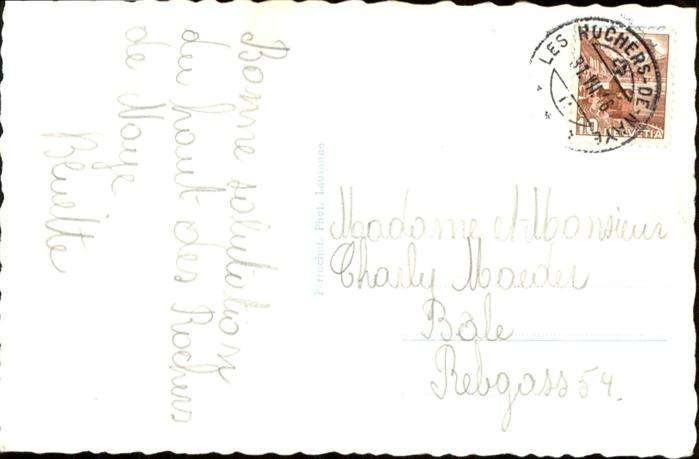 Bonne salutation
du haut des Rochers
de Naye
Bluette
Perrochet. Phot. Lausanne
LES ROCHERS-DE-NAYE
10 HELVETIA
Madame et Monsieur
Charly Maeder
Bâle
Rebgass 54.